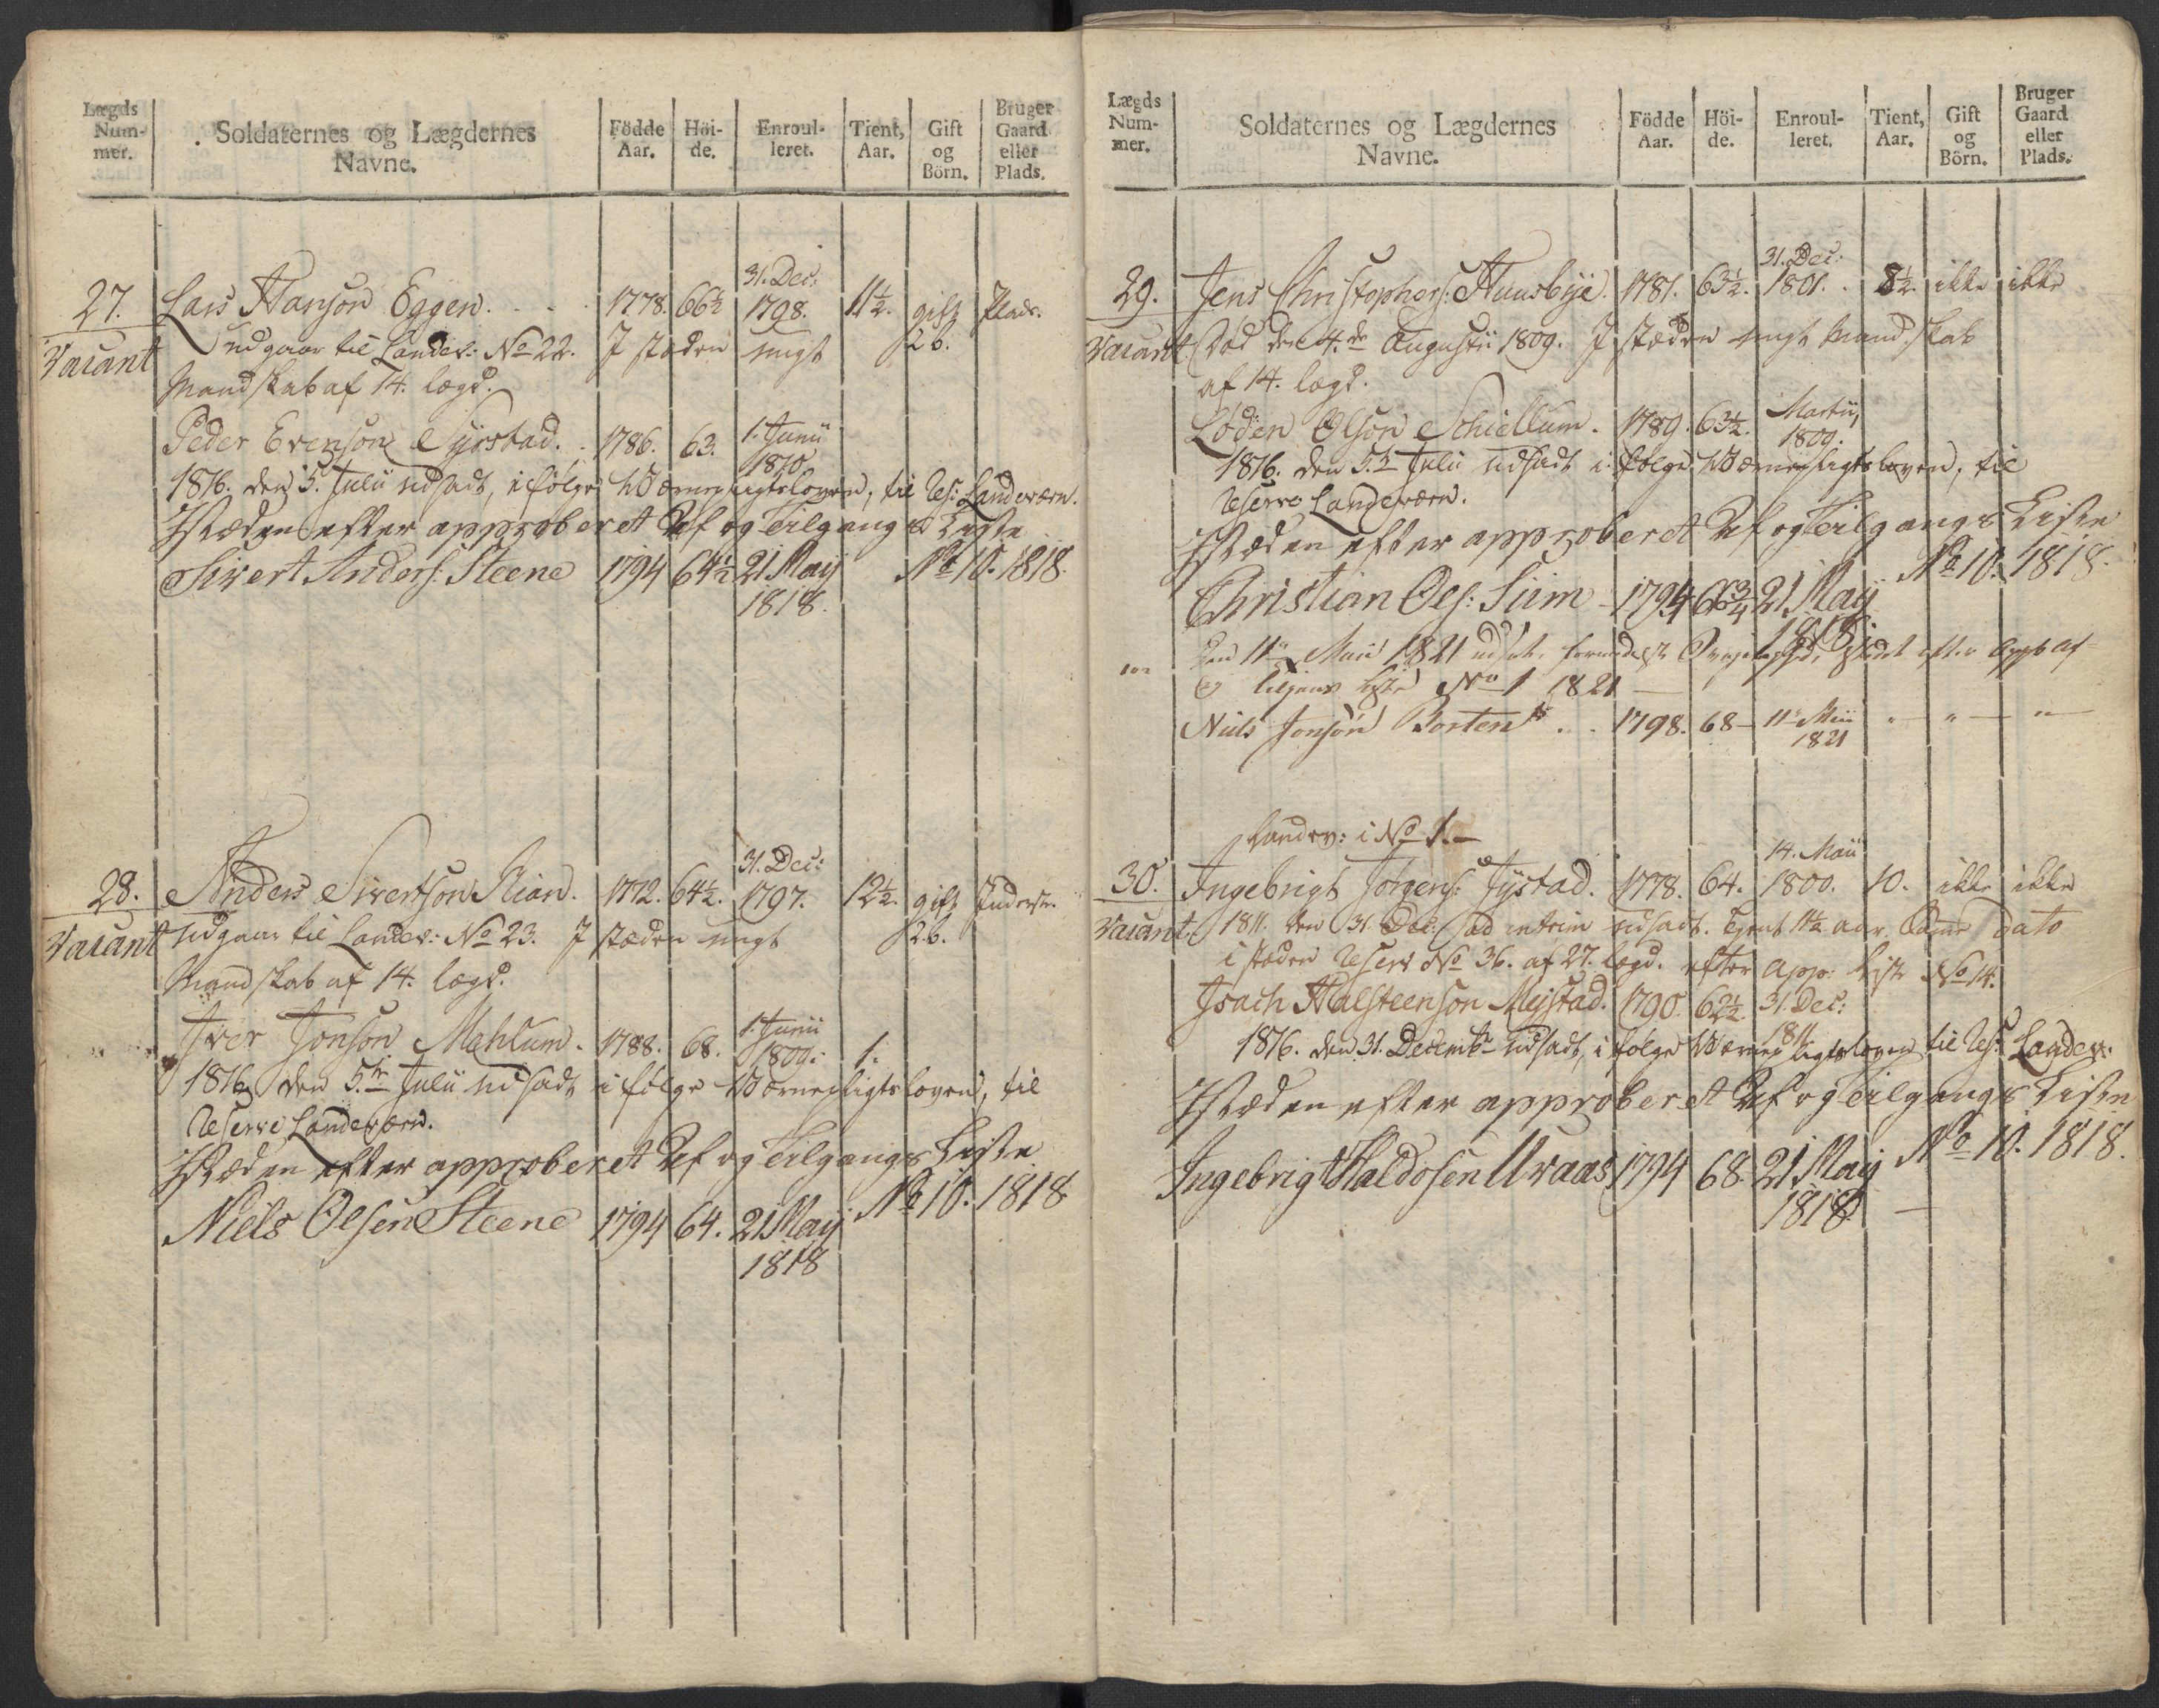 Lægds Num- mer.
Soldaternes og Lægdernes Navne.
Födde Aar.
Höi- de.
Enroul- leret.
Tient, Aar.
Gift og Börn.
Bruger Gaard eller Plads.
31. Dec:
27. Lars Hanson Eggen. 1778. 66½ 1798. 11½. gift Plads.
Vacant udgaar til Landev: No 22. I stæden nygt 2 b.
Mandskab af 14. lægd.
Peder Evenson Syrstad. 1786. 63. 1. Junii 1810.
1816. den 5. Julii udsadt, ifølge Værnepligtsloven, til Res: Landeværn.
I stæden efter approberet Af og Tilgangs Liste
Sivert Anders: Steene 1794 64½ 21 Maij No 10. 1818.
1818.
31. Dec:
28. Anders Sivertson Rian. 1772. 64½. 1797. 12½. gift Inderst.
Vacant udgaar til Landev: No 23. I stæden nygt 2 b.
Mandskab af 14. lægd.
Iver Jonson Mehlum. 1788. 68. 1. Junii 1809. 1.
1816 den 5. Julii udsadt ifølge Værnepligtsloven, til
Reserve Landeværn.
I stæden efter approberet Af og Tilgangs Liste
Niels Olsen Steene 1794 64. 21 Maij No 10. 1818
1818
Lægds Num- mer.
Soldaternes og Lægdernes Navne.
Födde Aar.
Höi- de.
Enroul- leret.
Tient, Aar.
Gift og Börn.
Bruger Gaard eller Plads.
31. Dec:
29. Jens Christophers: Huusbye. 1781. 63½. 1801. 8½ ikke ikke
Vacant Død den 4.de Augustii 1809. I stæden nygt Mandskab
af 14. lægd.
Løden Olson Schiellum. 1789. 63½. Martii, 1809.
1816. den 5. Julii udsadt ifølge Værnepligtsloven, til
Reserve Landeværn.
I stæden efter approberet Af og Tilgangs Liste
Christian Ols: Siim 1794 21 Maij No 10. 1818.
1818
Den 11 Maii 1821 udsat formedelst i stædet efter App af-
og tilgangs Liste No 1 1821
Niels Jonson Borten 1798. 68 11 Maii 1821
Landev: i No 1.
14. Maii
30. Ingebrigt Jørgens: Tystad. 1778. 64. 1800. 10. ikke ikke
Vacant. 1811. den 31. Dec: ad interim udsadt. Tjent 11½ aar. dato
i stæden Reserv No 36. af 27. lægd. efter app: Liste No 14.
Isach Halsteenson Mejstad. 1790. 62½. 31. Dec: 1811.
1816. den 31. Decembr udsadt, ifølge Værnepligtsloven til Res: Landev:
I stæden efter approberet Af og Tilgangs Liste
Ingebrigt Haldosen Uvaas 1794 68. 21 Maij No 10. 1818.
1818